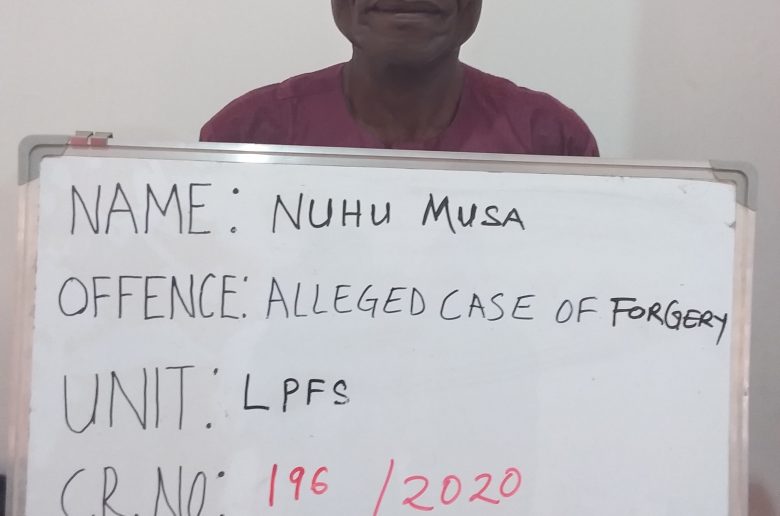 NAME: NUHU MUSA
OFFENCE: ALLEGED CASE OF FORGERY
UNIT: LPFS
CR.NO: 196 /2020